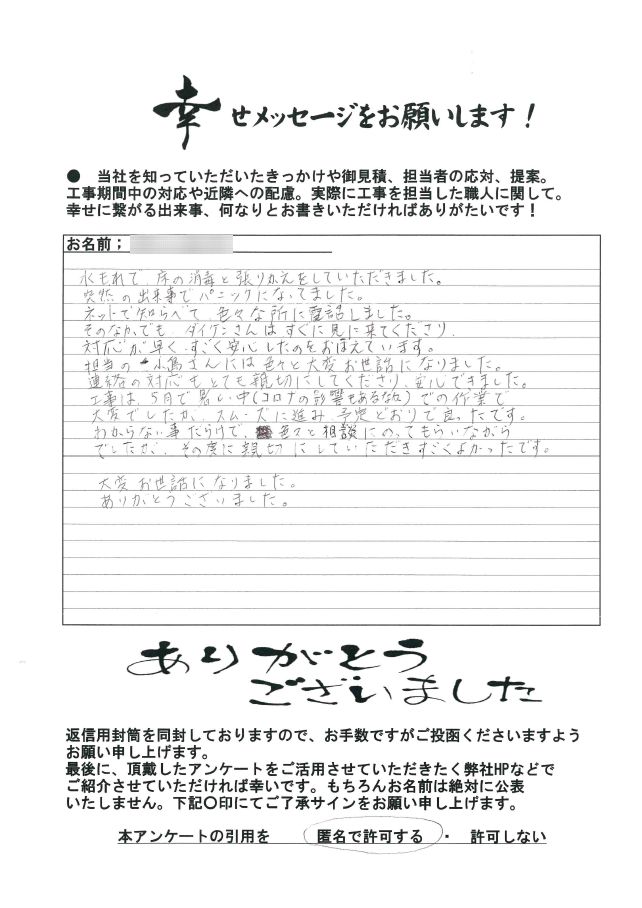 幸せメッセージをお願いします！
● 当社を知っていただいたきっかけや御見積、担当者の応対、提案。
工事期間中の対応や近隣への配慮。実際に工事を担当した職人に関して。
幸せに繋がる出来事、何なりとお書きいただければありがたいです！
お名前；
水もれで 床の消毒と張りかえをしていただきました。
突然の出来事でパニックになってました。
ネットで知らべて 色々な所に電話しました。
そのなかでも ダイケンさんは すぐに見に来てくださり、
対応が早く すごく安心したのをおぼえています。
担当の 小島さんには 色々と大変お世話になりました。
連絡の対応も とても親切にしてくださり 安心できました。
工事は、5月で暑い中(コロナの影響もあるなか)での作業で
大変でしたが、スムーズに進み 予定どおりで良ったです。
わからない事だらけで、色々と相談にのってもらいながら
でしたが、その度に親切にしていただきすごくよかったです。
大変お世話になりました。
ありがとうございました。
ありがとう
ございました
返信用封筒を同封しておりますので、お手数ですがご投函くださいますよう
お願い申し上げます。
最後に、頂戴したアンケートをご活用させていただきたく弊社HPなどで
ご紹介させていただければ幸いです。もちろんお名前は絶対に公表
いたしません。下記〇印にてご了承サインをお願い申し上げます。
本アンケートの引用を 匿名で許可する ・ 許可しない